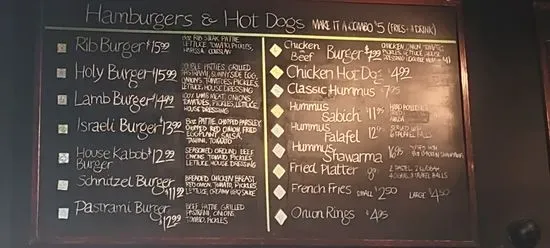 Hamburgers & Hot Dogs MAKE IT A COMBO $5 (FRIES + DRINK)
Rib Burger $15.99
8OZ RIB STEAK PATTIE
LETTUCE, TOMATO, PICKLES,
Holy Burger $15.99
DOUBLE PATTIES, GRILLED
PASTRAMI, SUNNY SIDE EGG,
ONIONS, TOMATOES, PICKLES,
LETTUCE, HOUSE DRESSING
Lamb Burger $14.99
100% LAMB MEAT, ONIONS
TOMATOES, PICKLES, LETTUCE
HOUSE DRESSING
Israeli Burger $13.99
8OZ PATTIE, CHOPPED PARSLEY
CHOPPED RED ONION, FRIED
EGGPLANT, SALSA,
TAHINI, TOMATO
House Kabob Burger $12.99
SEASONED GROUND BEEF
ONIONS, TOMATO, PICKLES
LETTUCE, HOUSE DRESSING
Schnitzel Burger $11.99
BREADED CHICKEN BREAST,
RED ONION, TOMATO, PICKLES
LETTUCE, CREAMY BBQ SAUCE
Pastrami Burger $12.99
BEEF PATTIE, GRILLED
PASTRAMI, ONIONS,
TOMATO, PICKLES
Chicken or Beef Burger
CHICKEN, ONION, TOMATO,
PICKLES, LETTUCE, HOUSE
DRESSING
Chicken Hot Dog $4.99
Classic Hummus $7.95
Hummus Sabich $11.95
HARD BOILED EGG
FRIED
Hummus Falafel 12.95
SERVED WITH
FALAFEL BALLS
Hummus Shawarma 16.95
Fried Platter
French Fries SMALL $2.50 LARGE $4.50
Onion Rings $4.95